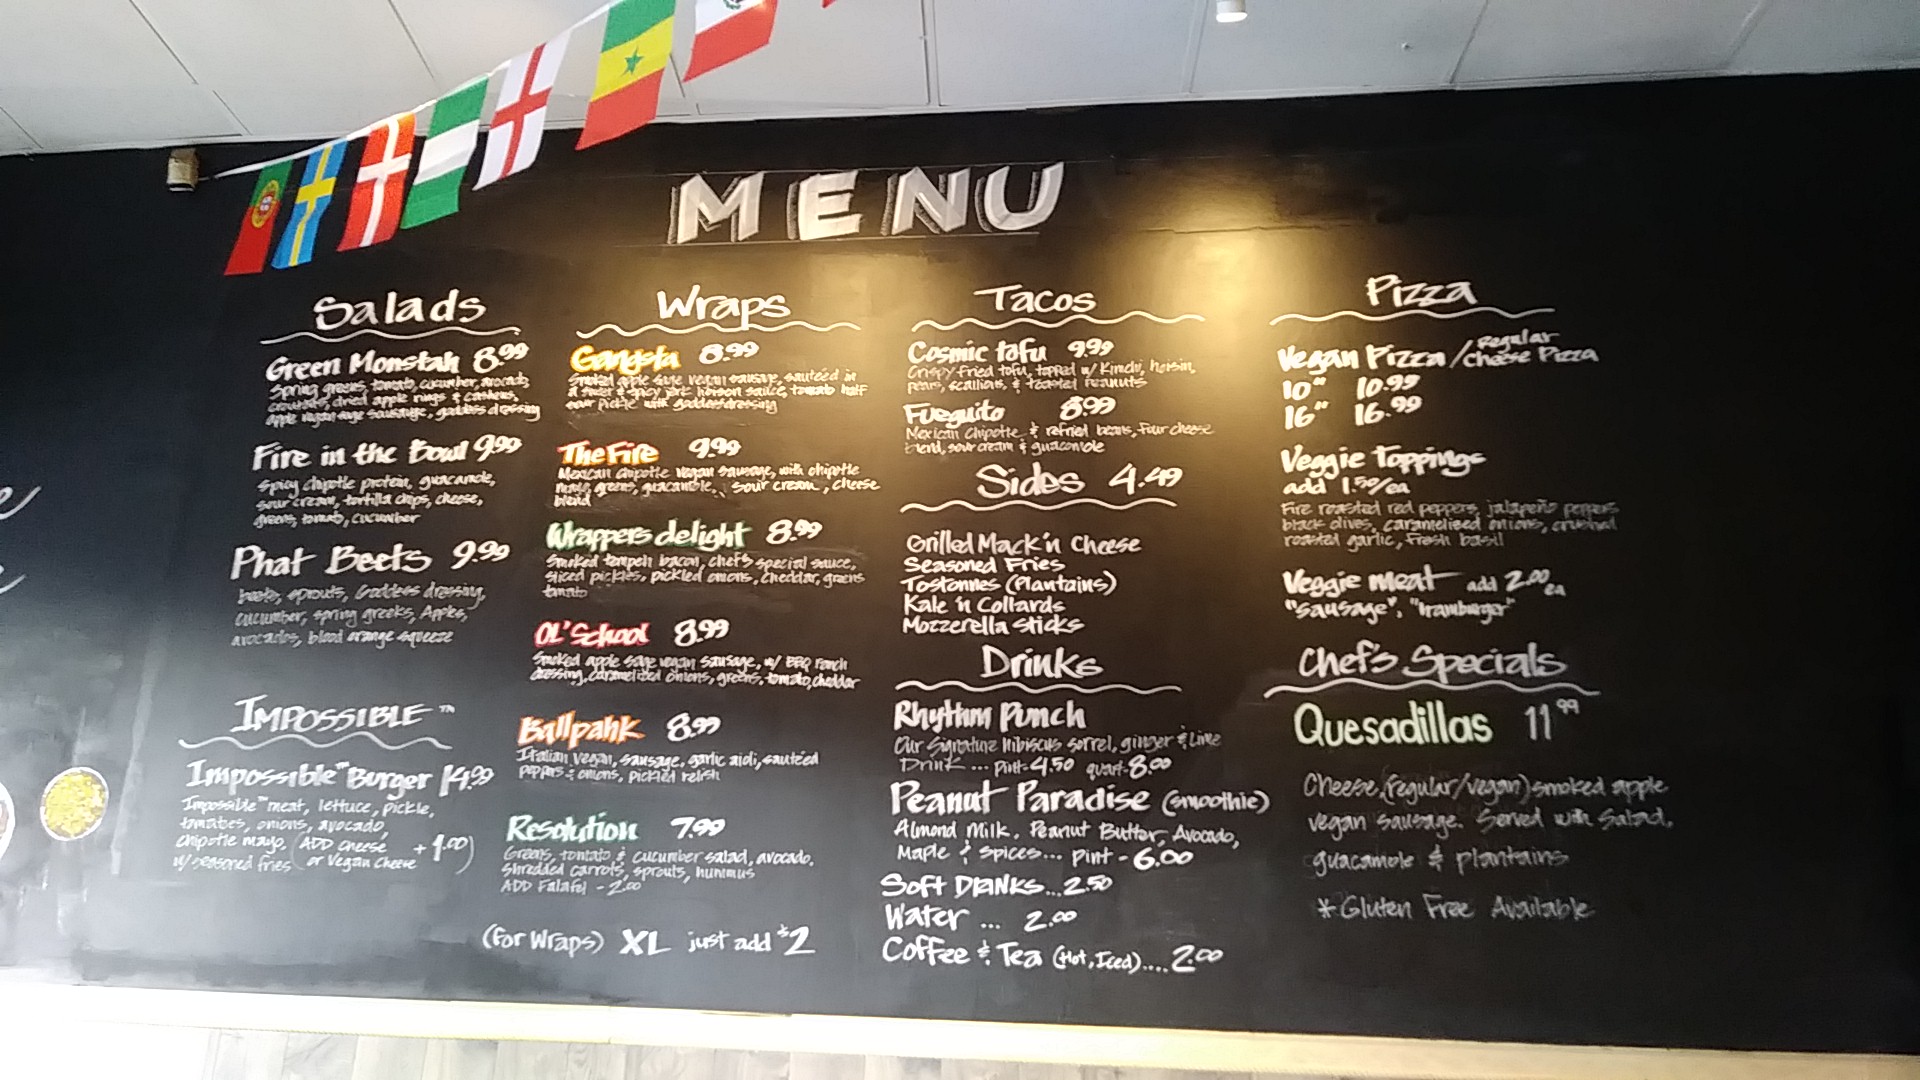 MENU
Salads
Green Monstah 8.99
Spring greens, tomato, cucumber, avocado,
croutons, dried apple rings & cashews,
apple vegan sage sausage, goddess dressing
Fire in the Bowl 9.99
Spicy chipotle protein, guacamole,
sour cream, tortilla chips, cheese,
greens, tomato, cucumber
Phat Beets 9.99
beets, sprouts, Goddess dressing,
cucumber, spring greeks, Apples,
avocados, blood orange squeeze
IMPOSSIBLE™
Impossible™ Burger 14.99
Impossible™ meat, lettuce, pickle,
tomatoes, onions, avocado,
chipotle mayo. (ADD cheese
w/ seasoned fries or Vegan Cheese + 1.00)
Wraps
Gangsta 8.99
Smoked apple sage vegan sausage, sautéed in
a sweet & spicy jerk hoison sauce, tomato half
sour pickle with goddess dressing
The Fire 9.99
Mexican chipotle vegan sausage, with chipotle
mayo greens, guacamole, sour cream, cheese
blend
Wrappers delight 8.99
Smoked tempeh bacon, chef's special sauce,
sliced pickles, pickled onions, cheddar, greens
tomato
OL' School 8.99
Smoked apple sage vegan sausage, w/ BBQ ranch
dressing, caramelized onions, greens, tomato, cheddar
Ballpahk 8.99
Italian vegan, sausage, garlic aioli, sautéed
peppers & onions, pickled relish
Resolution 7.99
Greens, tomato & cucumber salad, avocado,
shredded carrots, sprouts, hummus
ADD Falafel - 2.00
(for Wraps) XL just add $2
Tacos
Cosmic tofu 9.99
Crispy fried tofu, topped w/ Kimchi, hoisin,
pears, scallions, & toasted peanuts
Fueguito 8.99
Mexican Chipotle & refried beans, four cheese
blend, sour cream & guacomole
Sides 4.49
Grilled Mack'n Cheese
Seasoned Fries
Tostonnes (Plantains)
Kale 'n Collards
Mozzerella Sticks
Drinks
Rhythm Punch
Our Signature hibiscus sorrel, ginger & Lime
Drink... pint-4.50 quart-8.00
Peanut Paradise (smoothie)
Almond Milk, Peanut Butter, Avocado,
Maple & spices... pint - 6.00
Soft DRINKS...2.50
Water ... 2.00
Coffee & Tea (Hot, Iced)....2.00
Pizza
Vegan Pizza / Regular Cheese Pizza
10" 10.99
16" 16.99
Veggie Toppings
add 1.50/ea
Fire roasted red peppers, jalapeño peppers
black olives, caramelized onions, crushed
roasted garlic, fresh basil
Veggie meat add 2.00 ea
"sausage", "hamburger"
Chef's Specials
Quesadillas 11 99
Cheese, (regular/vegan) smoked apple
vegan sausage. Served with Salad,
guacamole & plantains
*Gluten Free Available